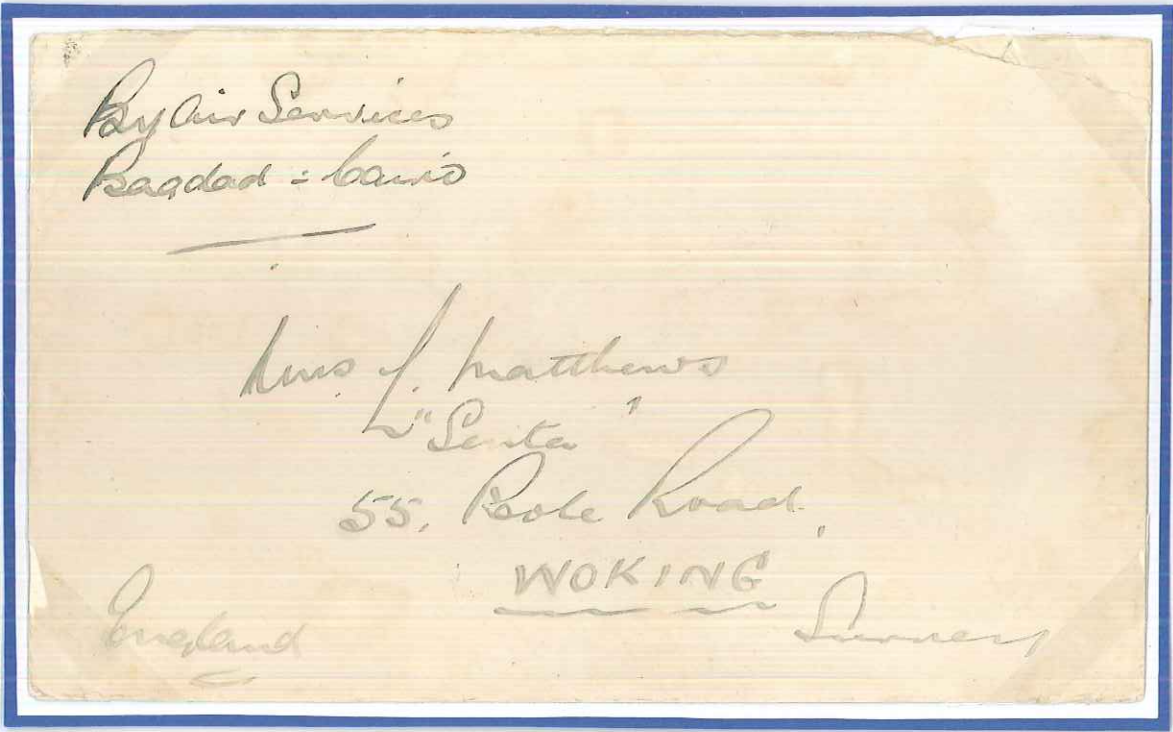 By Air Services
Bagdad = Cairo
Mrs J. Matthews
55, Road,
WOKING
Surrey
England